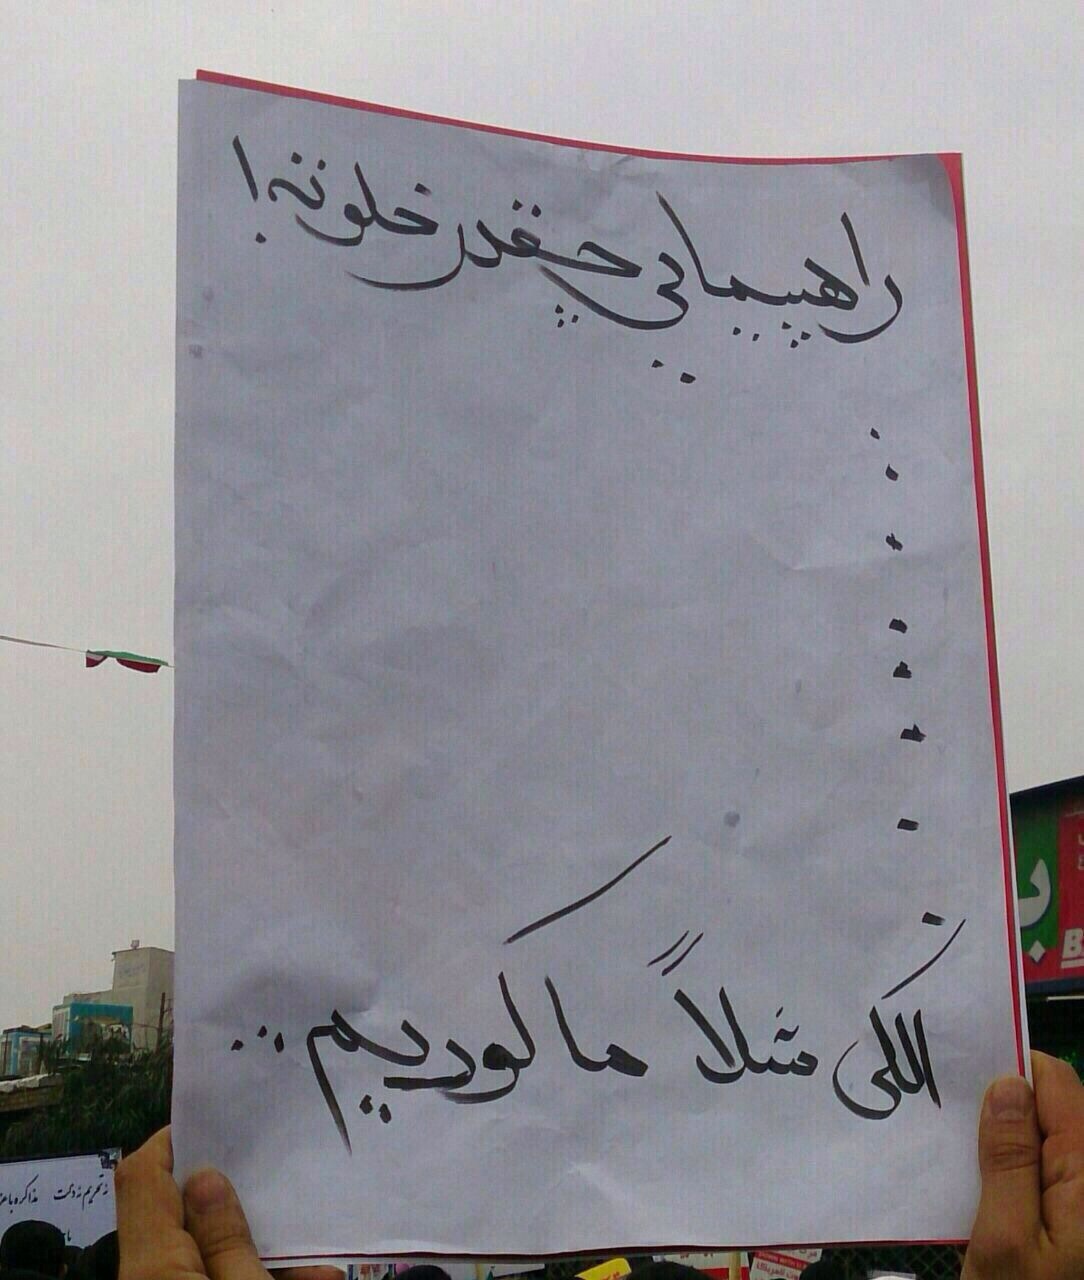 راهپیمایی چقدر خلوته!
الکی مثلاً ما کوریم..
نه تحریم نه ذلت مذاکره با عز